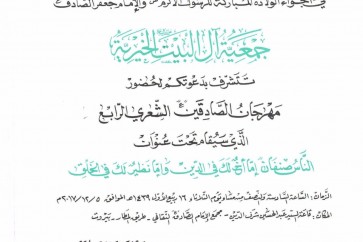 في أجواء الولادة المباركة للرسول الأكرم ﷺ والإمام جعفر الصادق
جمعية آل البيت الخيرية
تتشرف بدعوتكم لحضور
مهرجان الصادقين الشعري الرابع
الذي سيقام تحت عنوان
الناس صنفان إما أخ لك في الدين وإما نظير لك في الخلق
الزمان: الساعة السادسة والنصف من مساء يوم الثلاثاء ١٦ ربيع الأول ١٤٣٩هـ الموافق ٢٠١٧/١٢/٥م
المكان: قاعة السيد عبد الحسين شرف الدين - مجمع الإمام الصادق الثقافي - طريق المطار - بيروت